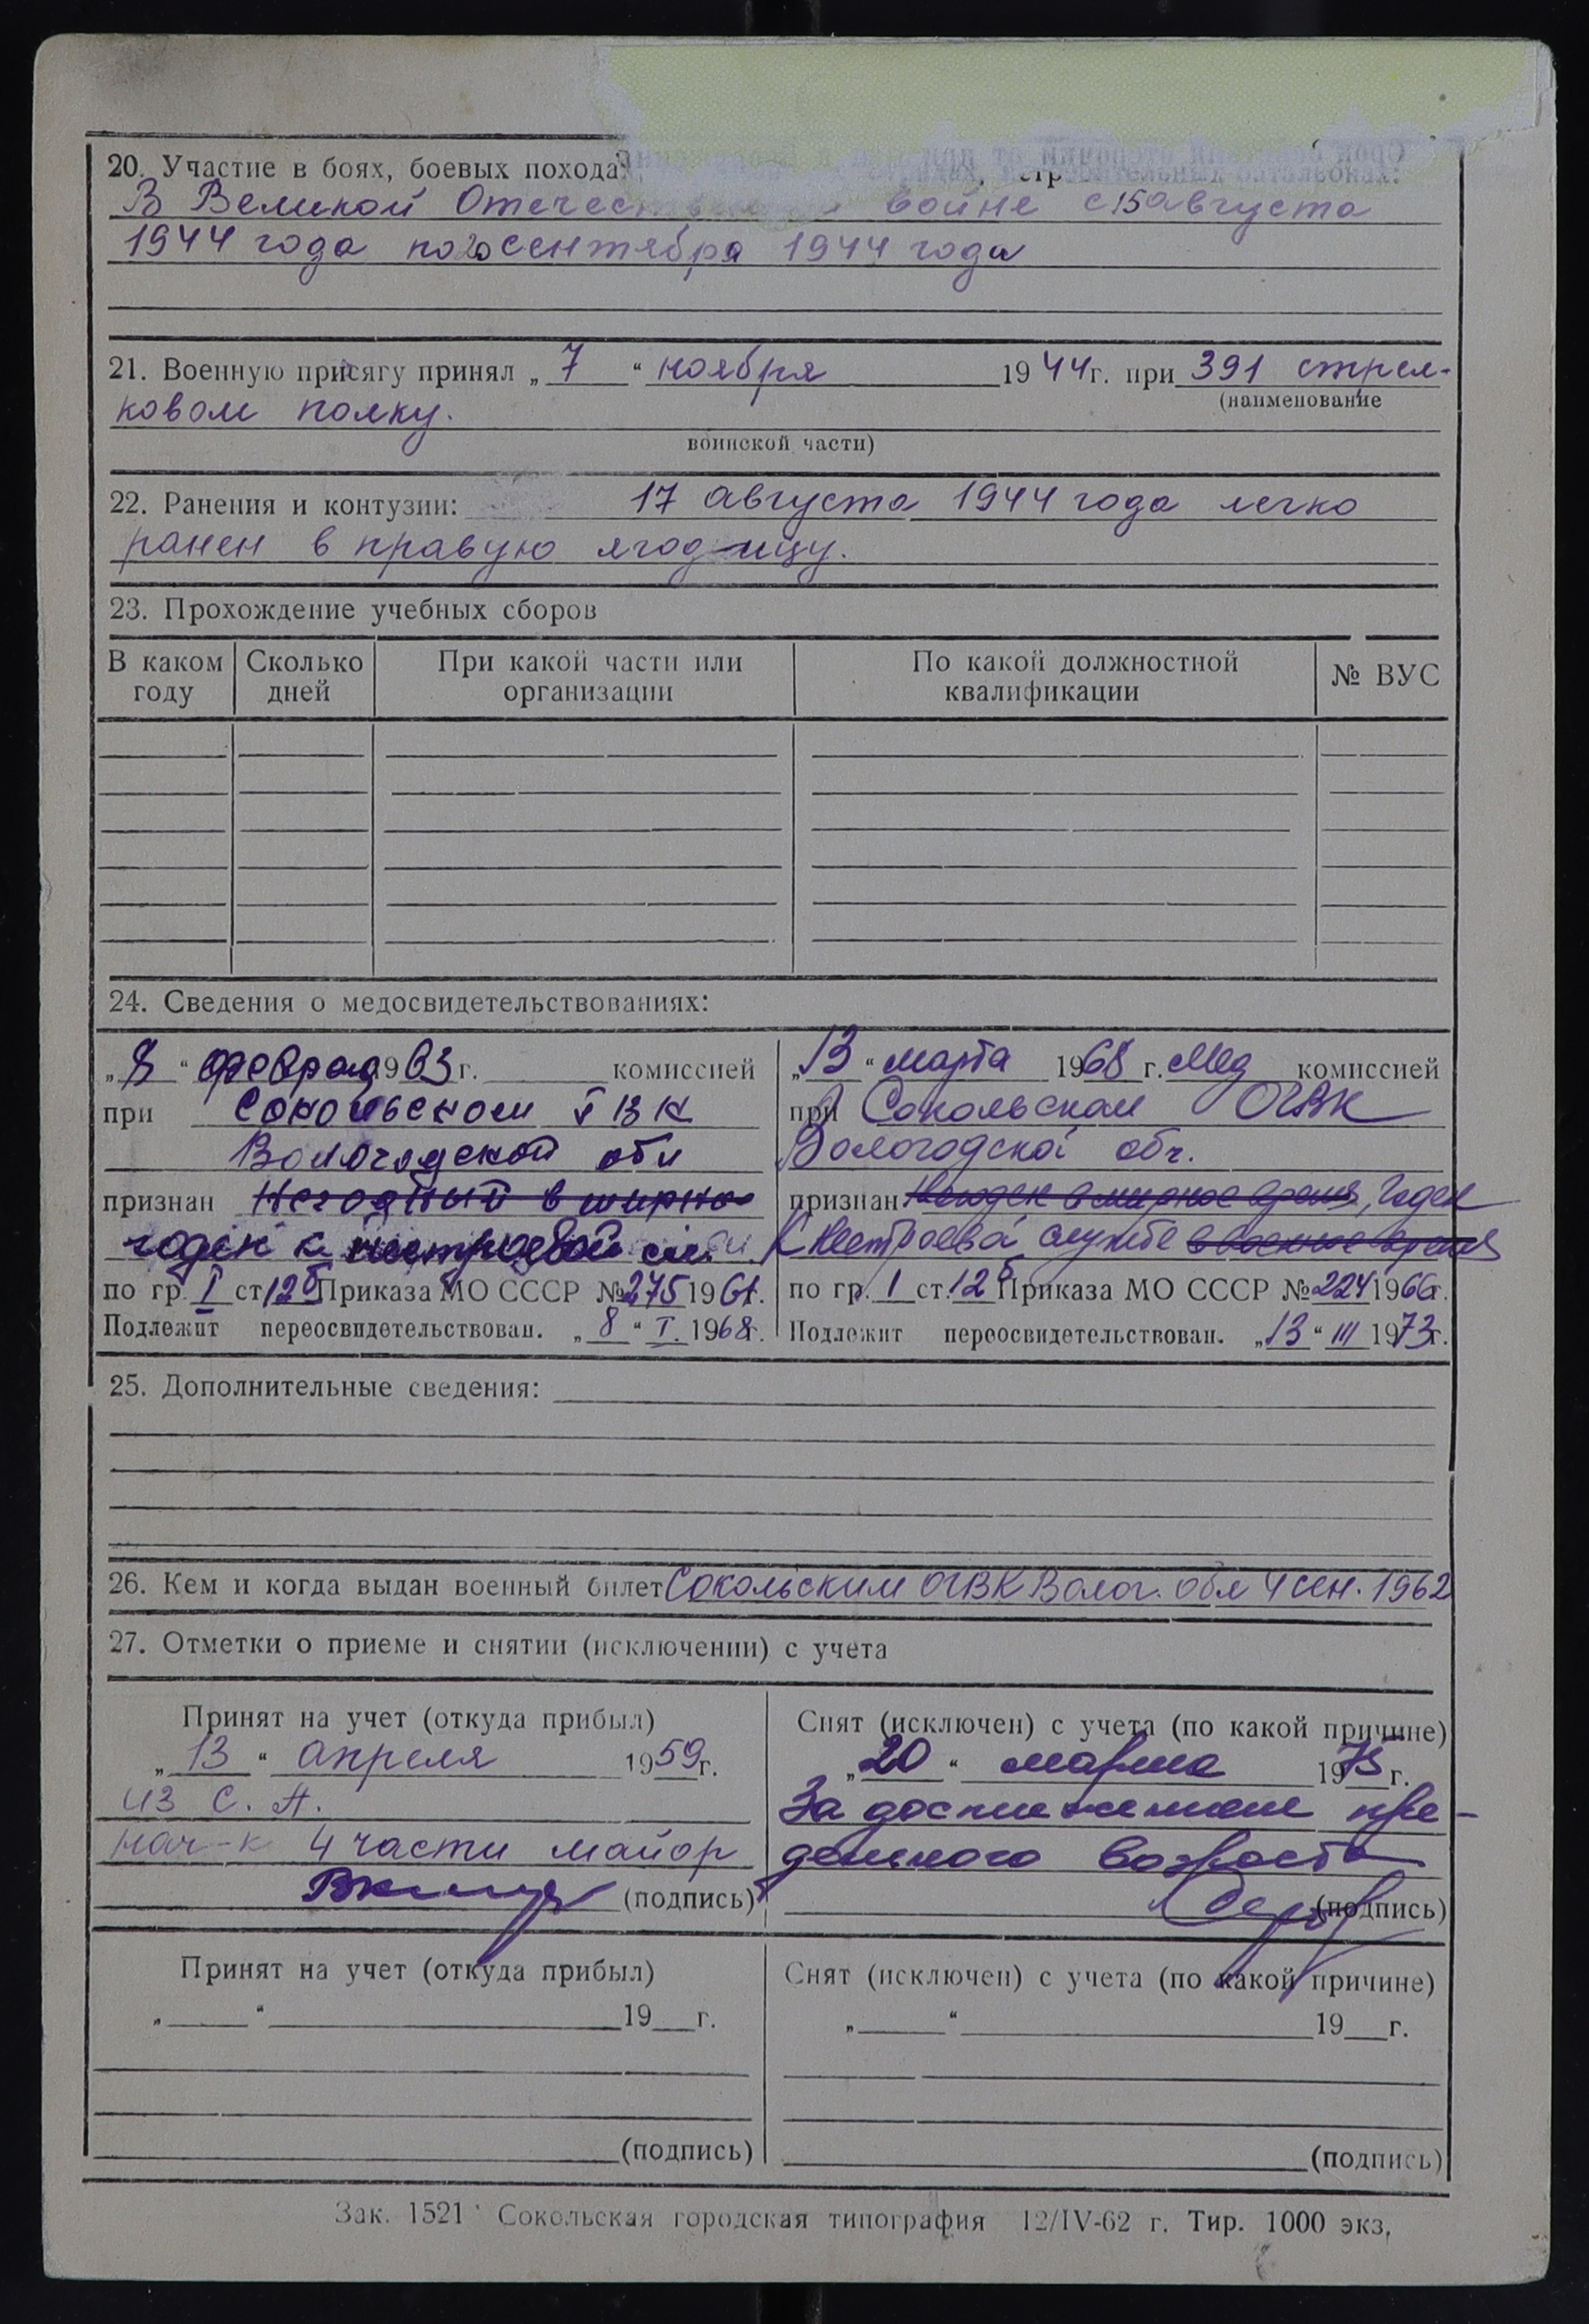 20. Участие в боях, боевых похода
В Великой Отечес войне с 15 августа
1944 года по 20 сентября 1944 года
21. Военную присягу принял „ 7 “ ноября 1944 г. при 391 стрел-
(наименование
ковом полку.
воинской части)
22. Ранения и контузии: 17 августа 1944 года легко
ранен в правую ягодицу.
23. Прохождение учебных сборов
В каком году | Сколько дней | При какой части или организации | По какой должностной квалификации | № ВУС
24. Сведения о медосвидетельствованиях:
„ 8 “ феврал 1963 г. комиссией
при Сокольском ГВК
Вологодской обл
признан Негодный в мирно
годен к нестроевой сл.
по гр. I ст 12б Приказа МО СССР № 275 1961 г.
Подлежит переосвидетельствован. „ 8 “ I. 1968 г.
„ 13 “ марта 1968 г. Мед комиссией
при Сокольском ОГВК
Вологодской обл.
признан Негоден в мирное время, Годен
к нестроевой службе в военное время
по гр. 1 ст. 12б Приказа МО СССР № 224 1966 г.
Подлежит переосвидетельствован. „ 13 “ III 1973 г.
25. Дополнительные сведения:
26. Кем и когда выдан военный билет Сокольским ОГВК Волог. обл 4 сен. 1962
27. Отметки о приеме и снятии (исключении) с учета
Принят на учет (откуда прибыл)
„ 13 “ апреля 1959 г.
из С. А.
нач-к 4 части майор
(подпись)
Снят (исключен) с учета (по какой причине)
„ 20 “ марта 1975 г.
За достижение пре-
дельного возраста
(подпись)
Принят на учет (откуда прибыл)
„ “ 19 г.
(подпись)
Снят (исключен) с учета (по какой причине)
„ “ 19 г.
(подпись)
Зак. 1521 Сокольская городская типография 12/IV-62 г. Тир. 1000 экз.